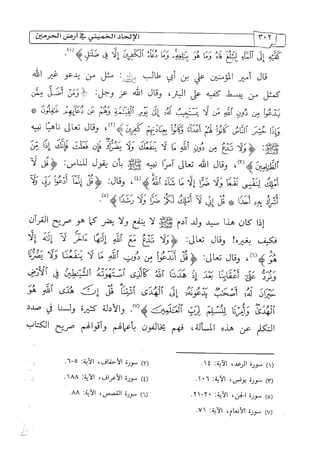 ٣٠٢ الإلحاد الخميني في أرض الحرمين
كَفَّيْهِ إِلَى الْمَاءِ لِيَبْلُغَ فَاهُ وَمَا هُوَ بِبَالِغِهِ وَمَا دُعَاءُ الْكَافِرِينَ إِلَّا فِي ضَلَالٍ ﴾(١).
قال أمير المؤمنين علي بن أبي طالب : مثل من يدعو غير الله
كمثل من يبسط كفيه على البئر، وقال الله عز وجل: ﴿ وَمَنْ أَضَلُّ مِمَّن
يَدْعُوا مِن دُونِ اللَّهِ مَن لَّا يَسْتَجِيبُ لَهُ إِلَى يَوْمِ الْقِيَامَةِ وَهُمْ عَن دُعَائِهِمْ غَافِلُونَ *
وَإِذَا حُشِرَ النَّاسُ كَانُوا لَهُمْ أَعْدَاءً وَكَانُوا بِعِبَادَتِهِمْ كَافِرِينَ ﴾(٢)، وقال تعالى ناهيًا نبيه
ﷺ: ﴿ وَلَا تَدْعُ مِن دُونِ اللَّهِ مَا لَا يَنفَعُكَ وَلَا يَضُرُّكَ فَإِن فَعَلْتَ فَإِنَّكَ إِذًا مِّنَ
الظَّالِمِينَ ﴾(٣)، وقال الله تعالى آمرًا نبيه ﷺ بأن يقول للناس: ﴿ قُل لَّا
أَمْلِكُ لِنَفْسِي نَفْعًا وَلَا ضَرًّا إِلَّا مَا شَاءَ اللَّهُ ﴾(٤)، وقال: ﴿ قُلْ إِنَّمَا أَدْعُو رَبِّي وَلَا
أُشْرِكُ بِهِ أَحَدًا * قُلْ إِنِّي لَا أَمْلِكُ لَكُمْ ضَرًّا وَلَا رَشَدًا ﴾(٥).
إذا كان هذا سيد ولد آدم ﷺ لا ينفع ولا يضر كما هو صريح القرآن
فكيف بغيره! وقال تعالى: ﴿ وَلَا تَدْعُ مَعَ اللَّهِ إِلَهًا آخَرَ لَا إِلَهَ إِلَّا
هُوَ ﴾(٦)، وقال تعالى: ﴿ قُلْ أَنَدْعُوا مِن دُونِ اللَّهِ مَا لَا يَنفَعُنَا وَلَا يَضُرُّنَا
وَنُرَدُّ عَلَى أَعْقَابِنَا بَعْدَ إِذْ هَدَانَا اللَّهُ كَالَّذِي اسْتَهْوَتْهُ الشَّيَاطِينُ فِي الْأَرْضِ
حَيْرَانَ لَهُ أَصْحَابٌ يَدْعُونَهُ إِلَى الْهُدَى ائْتِنَا قُلْ إِنَّ هُدَى اللَّهِ هُوَ
الْهُدَى وَأُمِرْنَا لِنُسْلِمَ لِرَبِّ الْعَالَمِينَ ﴾(٧). والأدلة كثيرة ولسنا في صدد
التكلم عن هذه المسألة، فهم يخالفون بأعمالهم وأقوالهم صريح الكتاب
(١) سورة الرعد، الآية: ١٤. (٢) سورة الأحقاف، الآية: ٥-٦.
(٣) سورة يونس، الآية: ١٠٦. (٤) سورة الأعراف، الآية: ١٨٨.
(٥) سورة الجن، الآية: ٢٠-٢١. (٦) سورة القصص، الآية: ٨٨.
(٧) سورة الأنعام، الآية: ٧١.